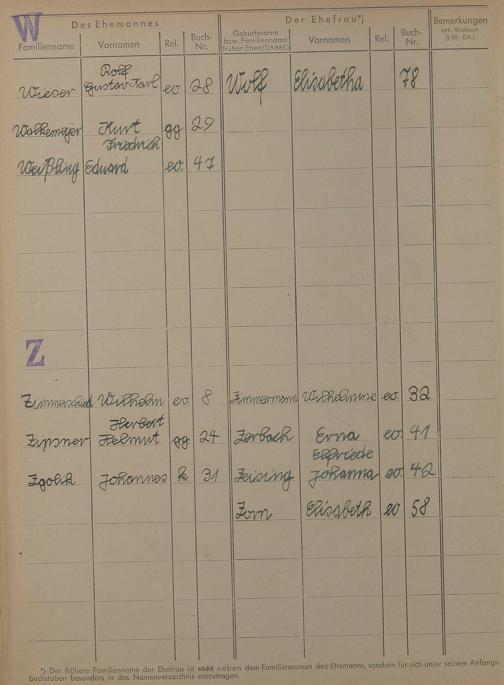 W
Des Ehemannes Der Ehefrau*) Bemerkungen
Familienname Vornamen Rel. Buch-Nr. Geburtsname bzw. Familienname früher. Ehen (DA 885) Vornamen Rel. Buch-Nr. evtl. Wohnort
Rolf
Wieser Gustav Karl ev. 28 Wolf Elisabetha 78
Walkemeyer Kurt gg 29
Friedrich
Weißling Eduard ev. 47
Z
Zimmerschied Wilhelm ev. 8 Zimmermann Wilhelmine ev. 32
Herbert
Zipsner Helmut gg 24 Zerbach Erna ev. 41
Elfriede
Johannes k 31 Zeising Johanna ev. 42
Zorn Elisabeth ev 58
*) Der frühere Familienname der Ehefrau ist nicht neben dem Familiennamen des Ehemanns, sondern für sich unter seinem Anfangs-
buchstaben besonders in das Namenverzeichnis einzutragen.